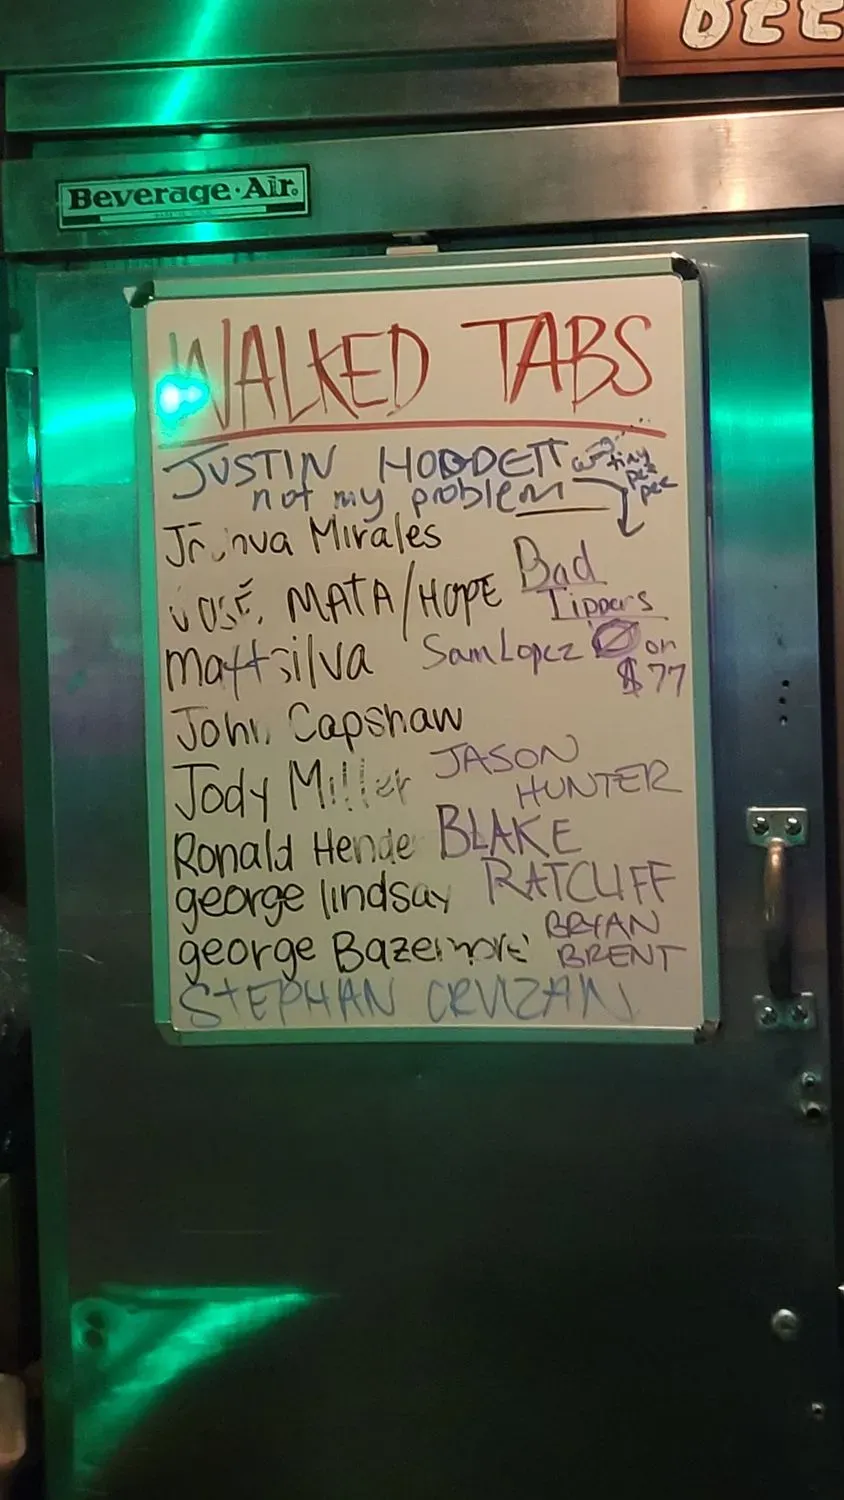 BEE
Beverage·Air.
WALKED TABS
JUSTIN HODDETT w/ tiny pee pee
not my problem
Mirales
JOSÉ MATA/HOPE
Bad
Tippers
Matt silva
Sam Lopez Ø on
$77
John Capshaw
Jody Miller
JASON
HUNTER
Ronald Hende
BLAKE
RATCLIFF
george lindsay
george Bazemore
BRYAN
BRENT
STEPHAN CRUZAN